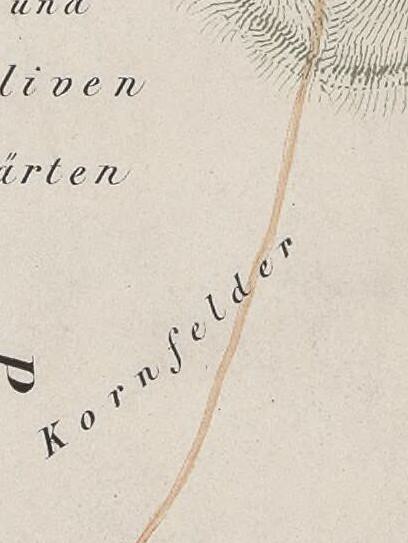 und
liven
ärten
Kornfelder